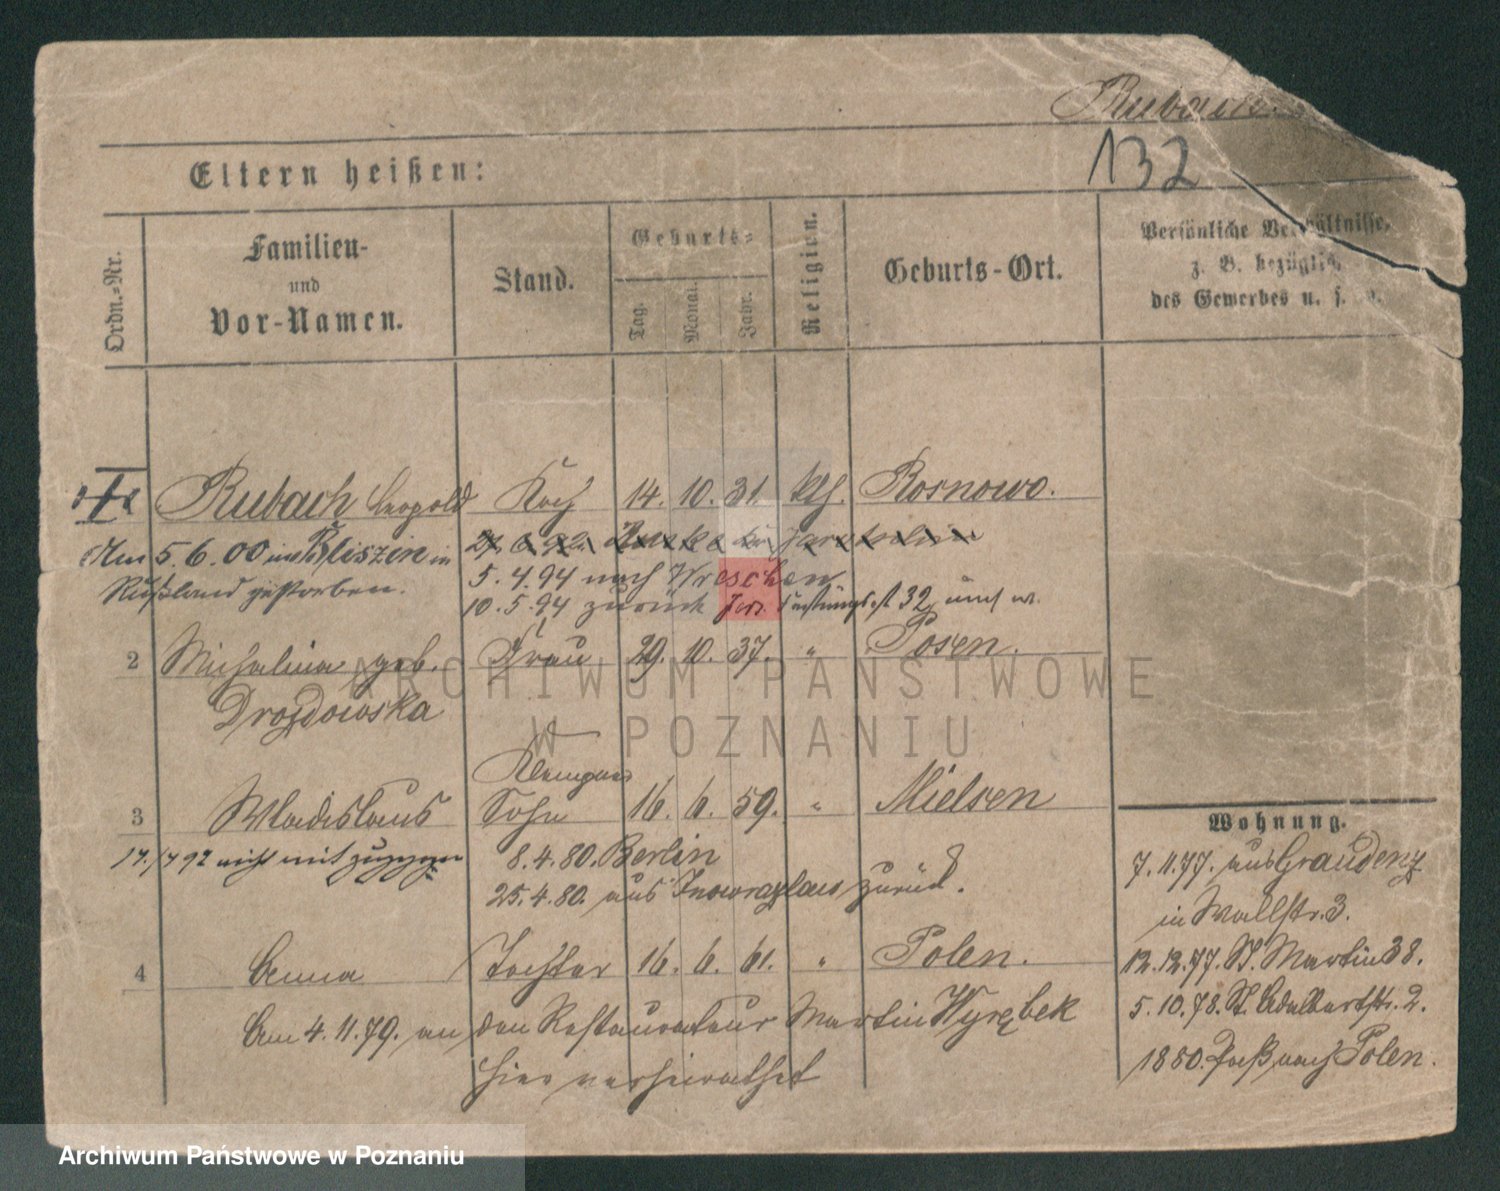 Rubach.
132
Eltern heißen:
Ordn.-Nr.
Familien-
und
Vor-Namen.
Stand.
Geburts-
Tag.
Monat.
Jahr.
Religion.
Geburts-Ort.
Persönliche Verhältnisse,
z. B. bezüglich
des Gewerbes u. s. w.
Rubach Leopold Koch 14. 10. 31. kth. Rosnowo.
Am 5.6.00 in Bliszin in
Rußland gestorben.
5.4.94 nach Wreschen.
10.5.94 zurück
2 Michalina geb. Frau 29. 10. 37. " Posen.
Drozdowska
ARCHIWUM PAŃSTWOWE
W POZNANIU
Klempner
3 Wladislaus Sohn 16. 6. 59. " Mielsen
nicht mit zugezogen
8.4.80. Berlin
25.4.80. aus Inowrazlaw zurück.
4 Anna Tochter 16. 6. 61. " Polen.
Am 4.11.79. an den Restaurateur Martin Wyrębek
hier verheirathet
Wohnung.
7.11.77. aus Graudenz
in Wallstr. 3.
12.12.77. St. Martin 38.
5.10.78. St. Adalbertstr. 2.
1880. Paß nach Polen.
Archiwum Państwowe w Poznaniu